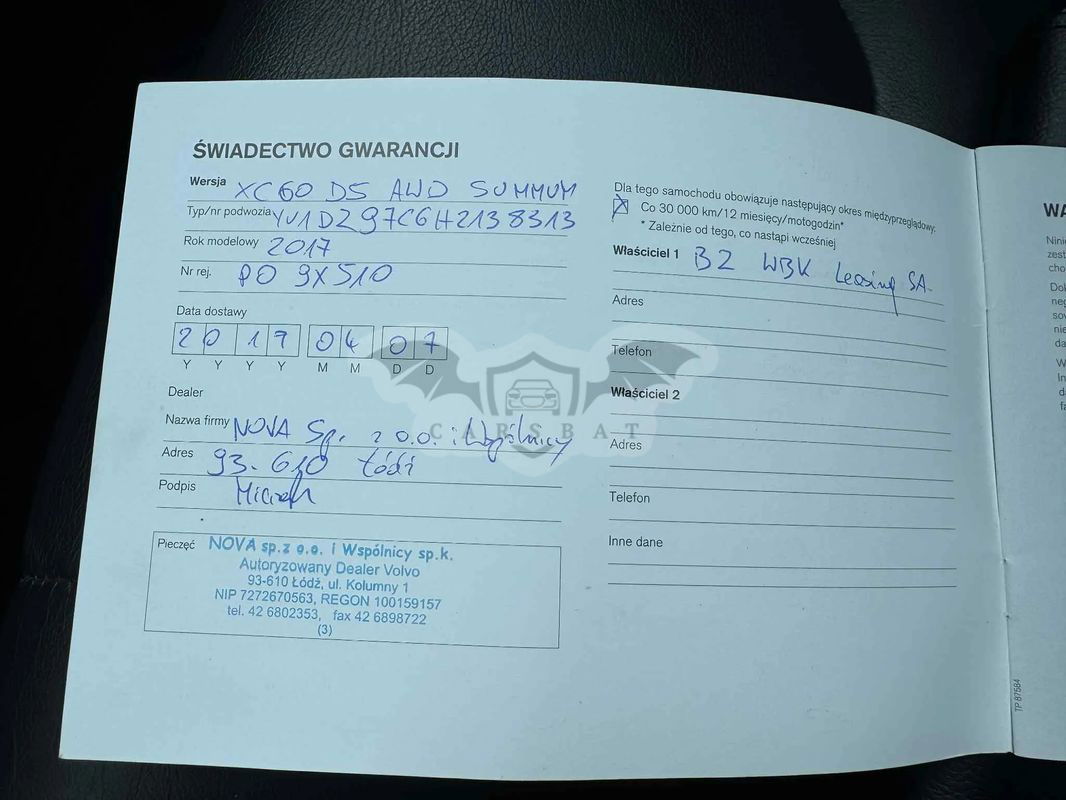 ŚWIADECTWO GWARANCJI
Wersja XC60 D5 AWD SUMMUM
Typ/nr podwozia YV1DZ97C6H2138313
Rok modelowy 2017
Nr rej. PO 9X510
Data dostawy
2017 04 07
Y Y Y Y M M D D
Dealer
Nazwa firmy NOVA Sp. z o.o. i Wspólnicy
Adres 93-610 Łódź
Podpis
Pieczęć NOVA sp.z o.o. i Wspólnicy sp.k.
Autoryzowany Dealer Volvo
93-610 Łódź, ul. Kolumny 1
NIP 7272670563, REGON 100159157
tel. 42 6802353, fax 42 6898722
(3)
Dla tego samochodu obowiązuje następujący okres międzyprzeglądowy:
Co 30 000 km/12 miesięcy/motogodzin*
* Zależnie od tego, co nastąpi wcześniej
Właściciel 1 BZ WBK Leasing SA.
Adres
Telefon
Właściciel 2
Adres
Telefon
Inne dane
TP 87584
CARSBAT